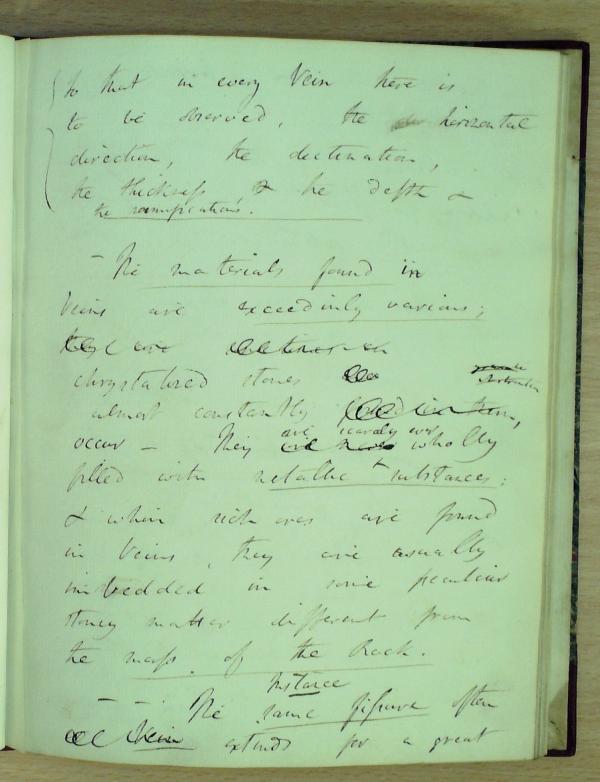 so that in every Vein there is
to be observed, the horizontal
direction, the declination,
the thickness, & the depth &
the ramifications.
– The materials found in
Veins are exceedingly various;
chrystalized stones
almost constantly
occur – They are scarcely ever wholly
filled with metallic substances;
& when rich ores are found
in Veins, they are usually
imbedded in some peculiar
stoney matter different from
the mass of the Rock.
Instance
– – . The same fissure often
Vein extends for a great